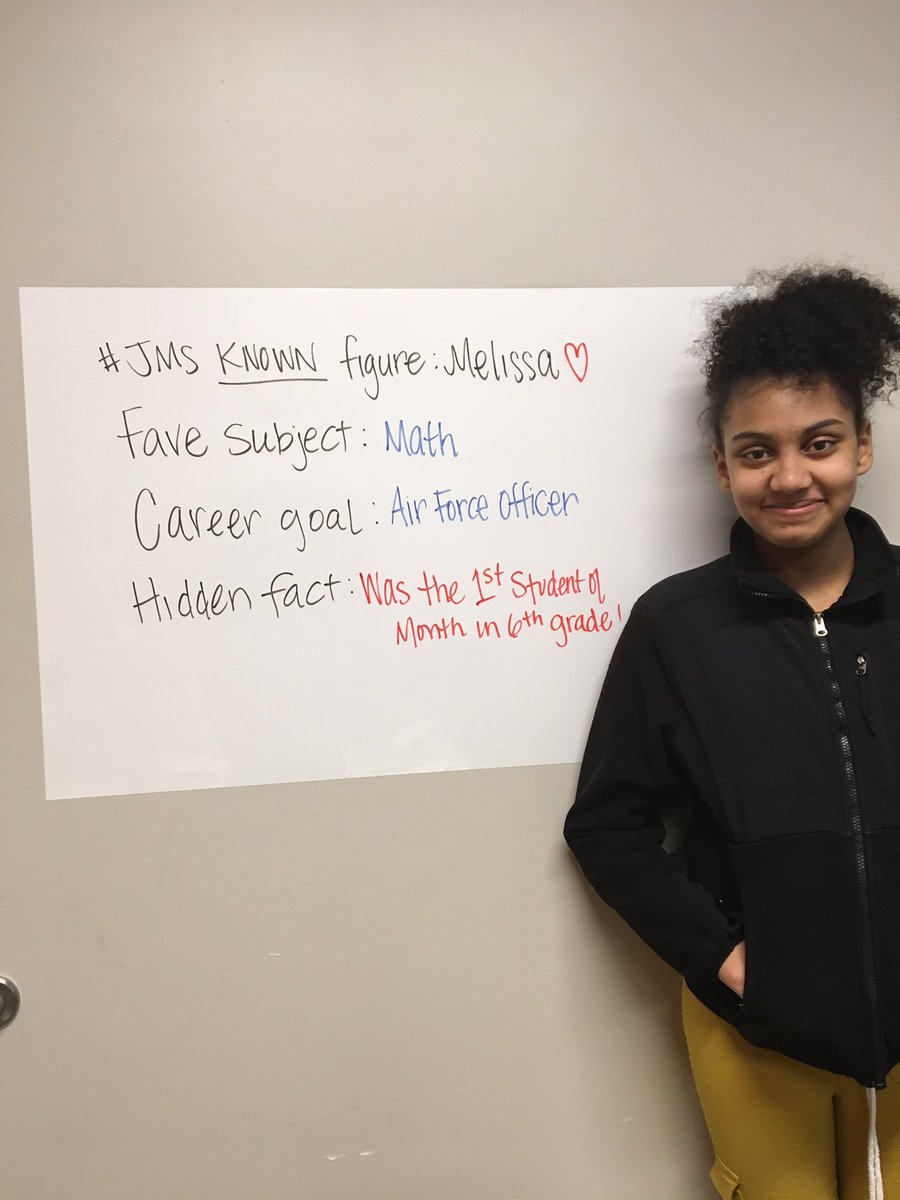 #JMS KNOWN figure: Melissa♡
Fave subject: Math
Career goal: Air Force Officer
Hidden fact: Was the 1st Student of
Month in 6th grade!